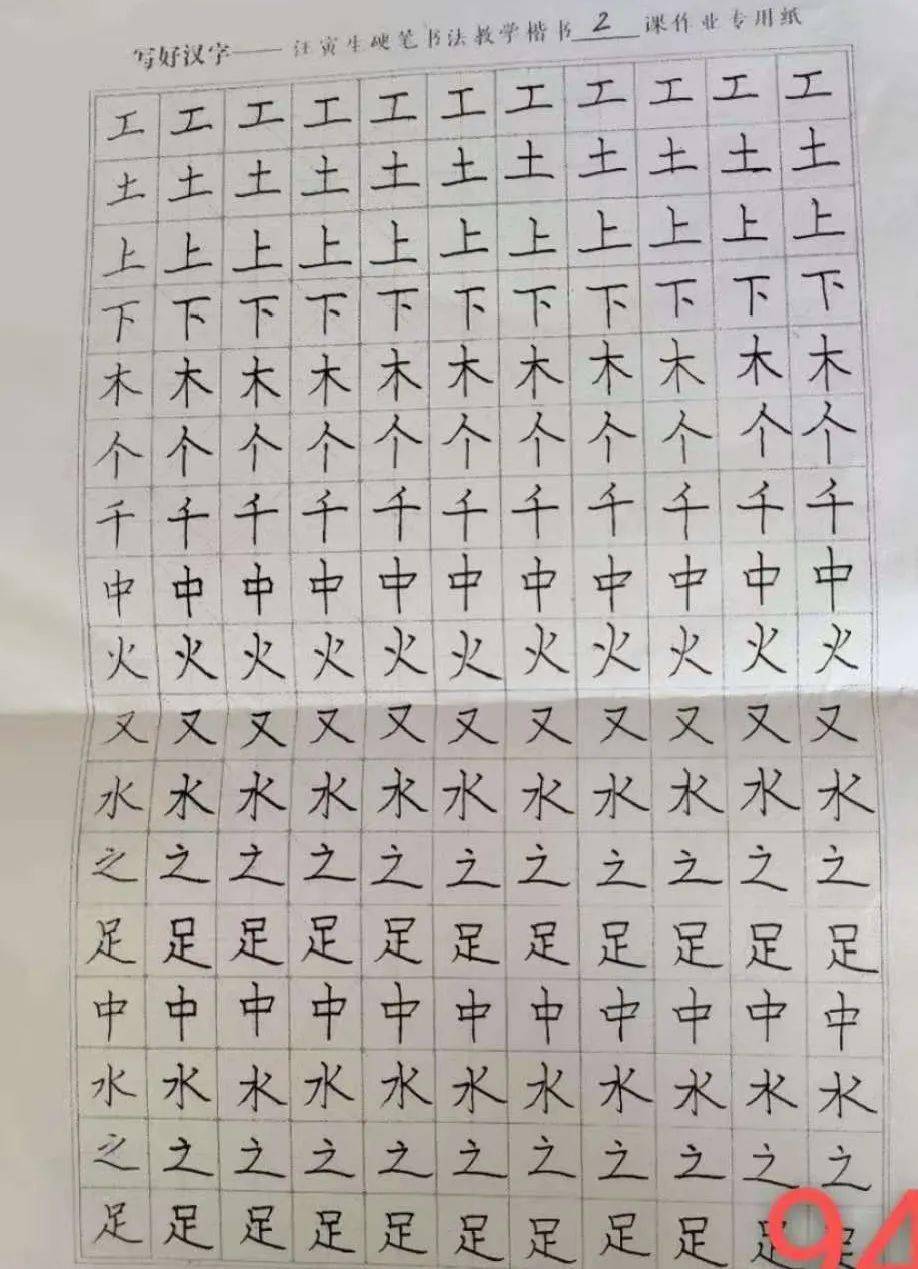 写好汉字——汪寅生硬笔书法教学楷书 2 课作业专用纸
工 工 工 工 工 工 工 工 工 工 工
土 土 土 土 土 土 土 土 土 土 土
上 上 上 上 上 上 上 上 上 上 上
下 下 下 下 下 下 下 下 下 下 下
木 木 木 木 木 木 木 木 木 木 木
个 个 个 个 个 个 个 个 个 个 个
千 千 千 千 千 千 千 千 千 千 千
中 中 中 中 中 中 中 中 中 中 中
火 火 火 火 火 火 火 火 火 火 火
又 又 又 又 又 又 又 又 又 又 又
水 水 水 水 水 水 水 水 水 水 水
之 之 之 之 之 之 之 之 之 之 之
足 足 足 足 足 足 足 足 足 足 足
中 中 中 中 中 中 中 中 中 中 中
水 水 水 水 水 水 水 水 水 水 水
之 之 之 之 之 之 之 之 之 之 之
足 足 足 足 足 足 足 足 足 足 足
94